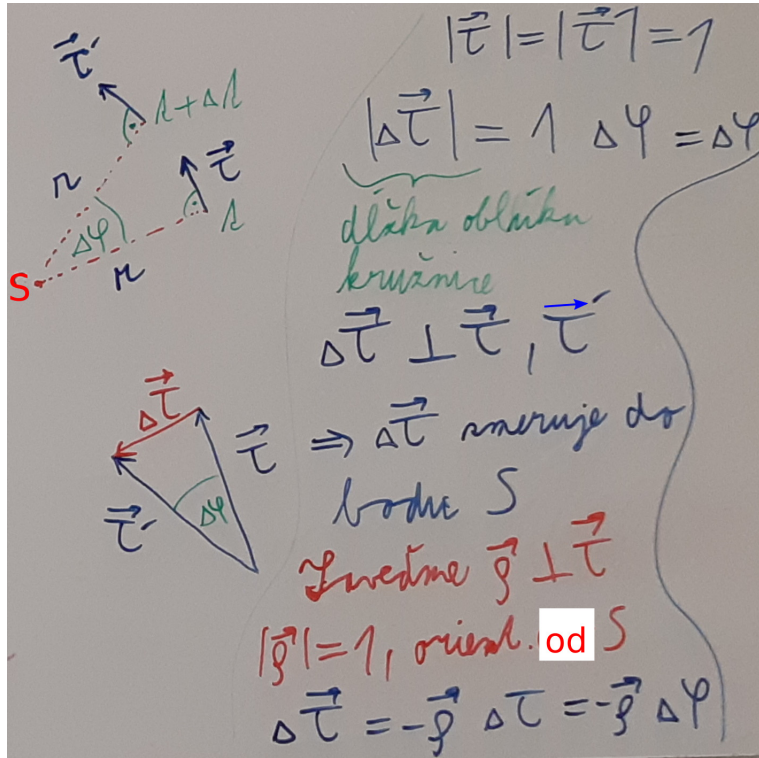 τ⃗′
s + Δs
τ⃗
r
Δφ
s
r
S
|τ⃗| = |τ⃗′| = 1
|Δτ⃗| = 1 Δφ = Δφ
dĺžka oblúku
kružnice
Δτ⃗ ⊥ τ⃗, τ⃗′
Δτ⃗
τ⃗
τ⃗′
Δφ
⇒ Δτ⃗ smeruje do
bodu S
Zaveďme ρ⃗ ⊥ τ⃗
|ρ⃗| = 1, orient. od S
Δτ⃗ = -ρ⃗ Δτ = -ρ⃗ Δφ